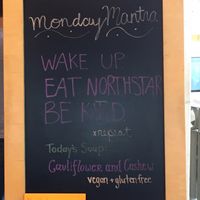 Monday Mantra
WAKE UP
EAT NORTHSTAR
BE KIND
*repeat
Today's Soup:
Cauliflower and Cashew
vegan + gluten free